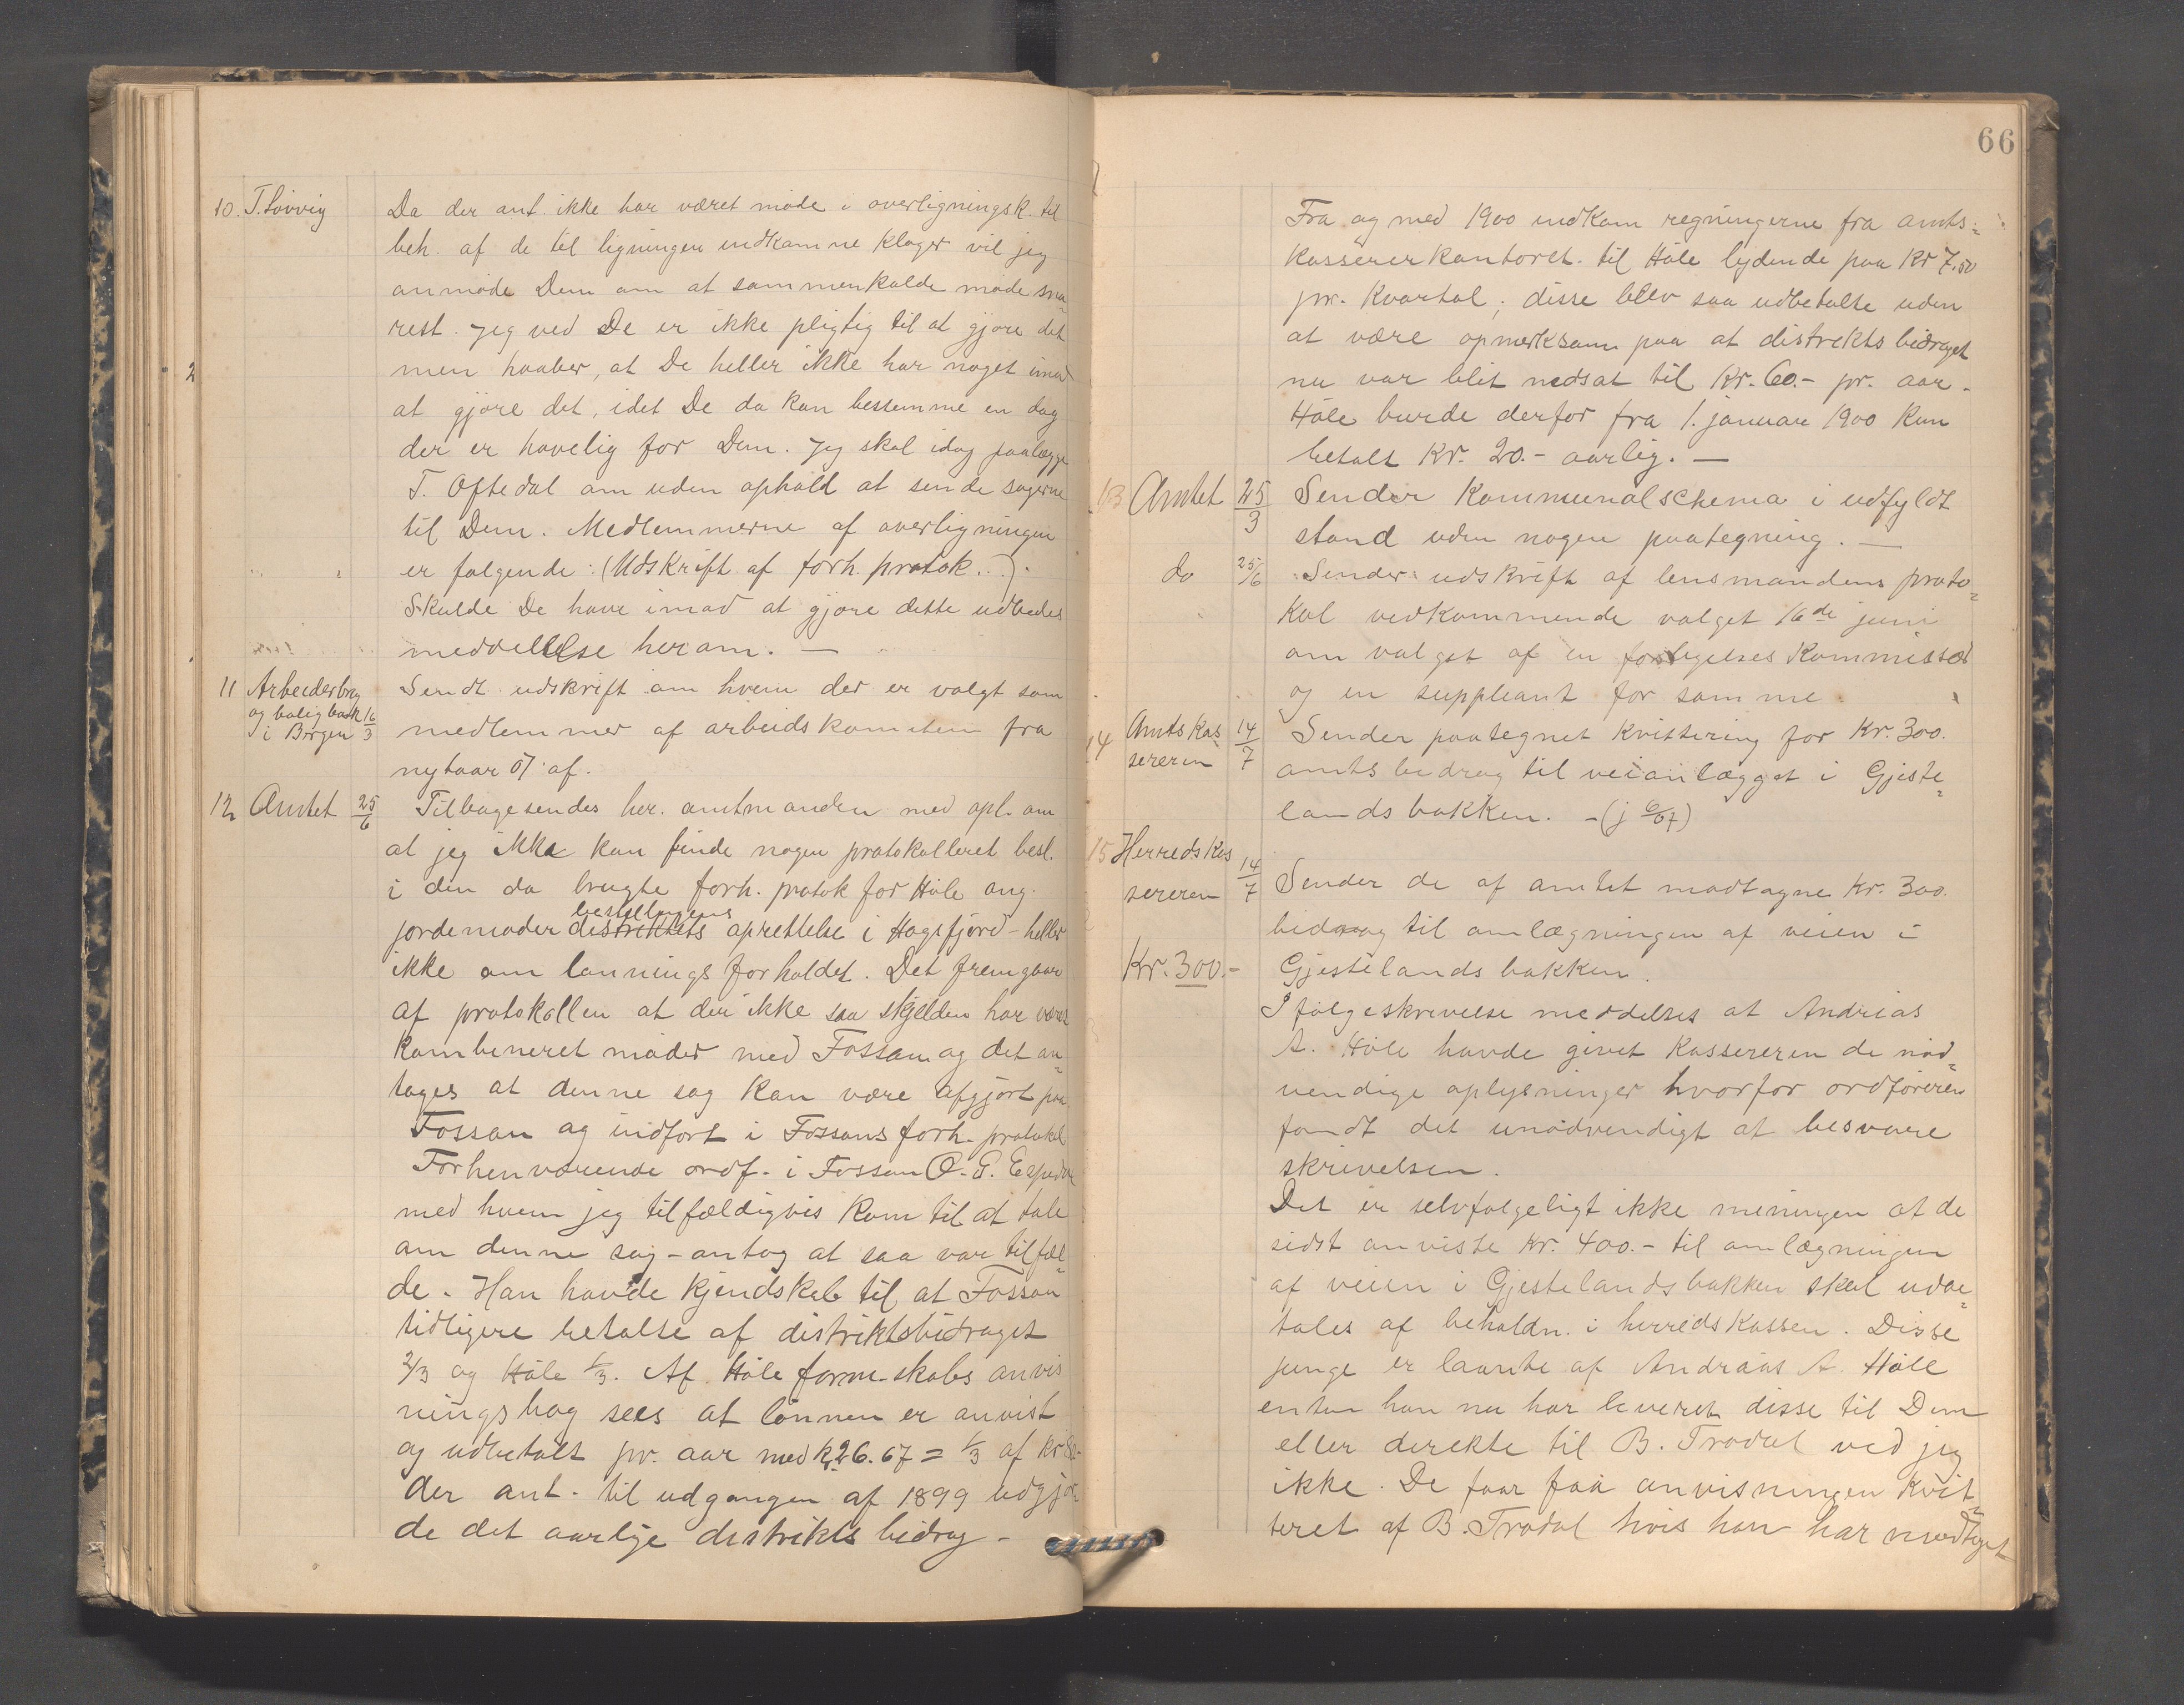 10. T. Løvvig
Da der ant. ikke har været møde i overligningsk. til
beh. af de til ligningen indkomne klager vil jeg
anmode Dem om at sammenkalde møde sna-
rest. Jeg ved De er ikke pligtig til at gjøre det
men haaber, at De heller ikke har noget imod
at gjøre det, idet De da kan bestemme en dag
der er høvelig for Dem. Jeg skal idag paalægge
T. Oftedal om uden ophold at sende sagerne
til Dem. Medlemmerne af overligningen
er følgende: (Udskrift af forh. protok...).
Skulde De have imod at gjøre dette udbedes
meddelelse herom. —
11 Arbeiderbrug
og boligbank 16/3
i Bergen
Sendt udskrift om hvem der er valgt som
medlemmer af arbeidskomiteen fra
nytaar 07 af.
12 Amtet 25/6
Tilbagesendes hr. amtmanden med opl. om
at jeg ikke kan finde nogen protokolleret besl.
i den da brugte forh. protok for Høle ang.
bestillingens
jordemoder distriktets oprettelse i Høgsfjord - heller
ikke om lønningsforholdet. Det fremgaar
af protokollen at der ikke saa skjelden har været
kombineret møder med Fossan og det an=
tages at denne sag kan være afgjort paa
Fossan og indført i Fossans forh. protokol
Forhenværende ordf. i Fossan O. G. Espedal
med hvem jeg tilfældigvis kom til at tale
om denne sag - antog at saa var tilfæl=
de. Han havde kjendskab til at Fossan
tidligere betalte af distriktsbidraget
2/3 og Høle 1/3. Af Høle formskabs anvis
ningsbog sees at lønnen er anvist
og udbetalt pr. aar med kr 26.67 = 1/3 af kr 80.-
der ant. til udgangen af 1899 udgjor-
de det aarlige distrikts bidrag -
66
Fra og med 1900 indkom regningerne fra amts=
kassererkontoret til Høle lydende paa kr 7.50
pr. kvartal; disse blev saa udbetalte uden
at være opmerksom paa at distriktsbidraget
nu var blit nedsat til kr. 60.- pr. aar.
Høle burde derfor fra 1. januar 1900 kun
betalt kr. 20.- aarlig. —
13 Amtet 25/3
Sender kommunalschema i udfyldt
stand uden nogen paategning. —
do 25/6
Sender udskrift af lensmandens proto=
kol vedkommende valget 16de juni
om valget af en forligelseskommissær
og en suppleant for samme
14 Amtskas
sereren 14/7
Sender paategnet kvittering for kr. 300.
amtsbidrag til veianlægget i Gjeste=
landsbakken. - (j 6/07)
15 Herredskas
sereren 14/7
Kr. 300.-
Sender de af amtet modtagne kr. 300.
bidrag til omlægningen af veien i
Gjestelandsbakken.
I følgeskrivelse meddeltes at Andreas
A. Høle havde givet kassereren de nød=
vendige oplysninger hvorfor ordføreren
fandt det unødvendigt at besvare
skrivelsen.
Det er selvfølgeligt ikke meningen at de
sidst anviste kr. 400.- til omlægningen
af veien i Gjestelandsbakken skal udbe=
tales af beholdn. i herredskassen. Disse
penge er laante af Andreas A. Høle
enten han nu har leveret disse til Dem
eller direkte til B. Trodal ved jeg
ikke. De faar faa anvisningen kvit=
teret af B. Trodal hvis han har modtaget